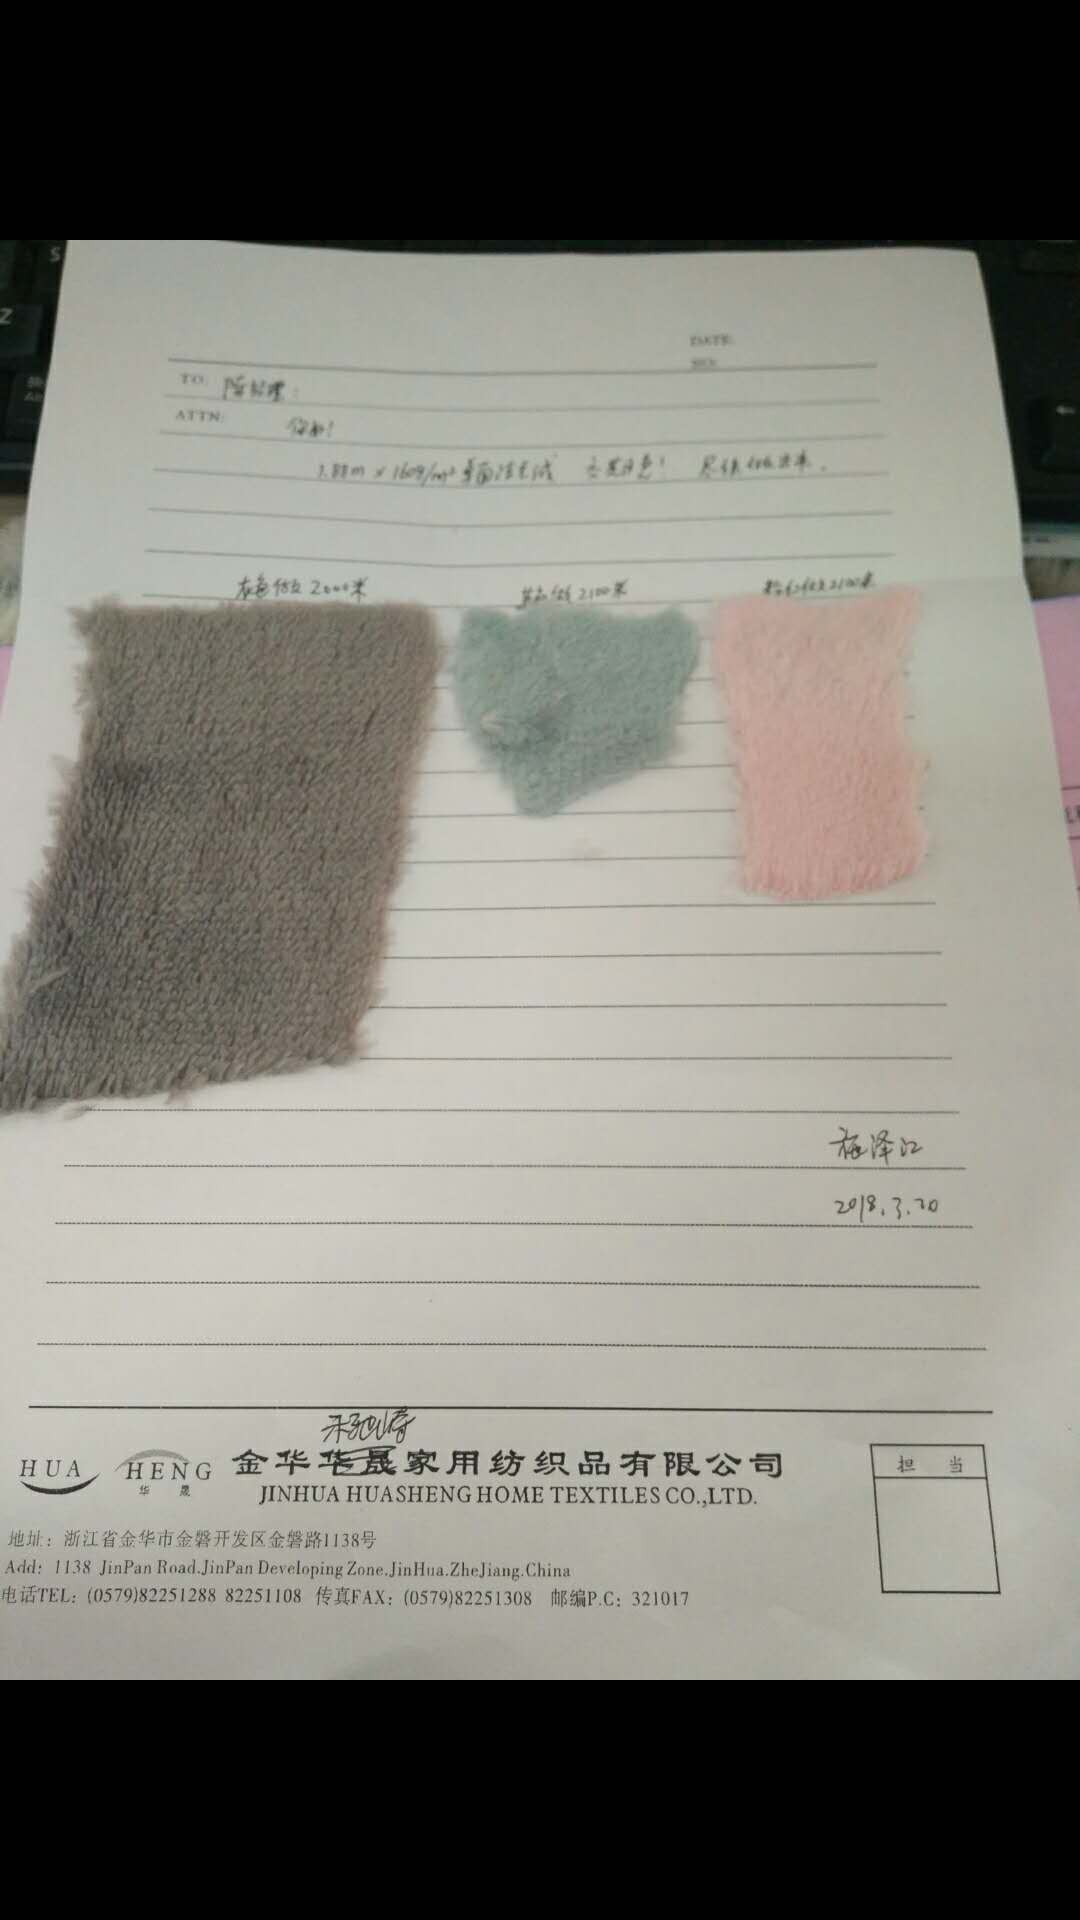 DATE:
TO: 陈经理：
ATTN: 你好！
1.88m×160g/m²单面法兰绒 尽快做出来。
灰色做 2000米 做 2100米 粉红做 2100米
2018.3.20
HUA HENG 华晟 金华华晟家用纺织品有限公司
JINHUA HUASHENG HOME TEXTILES CO.,LTD.
担当
地址：浙江省金华市金磐开发区金磐路1138号
Add：1138 JinPan Road.JinPan Developing Zone.JinHua.ZheJiang.China
电话TEL：(0579)82251288 82251108 传真FAX：(0579)82251308 邮编P.C：321017